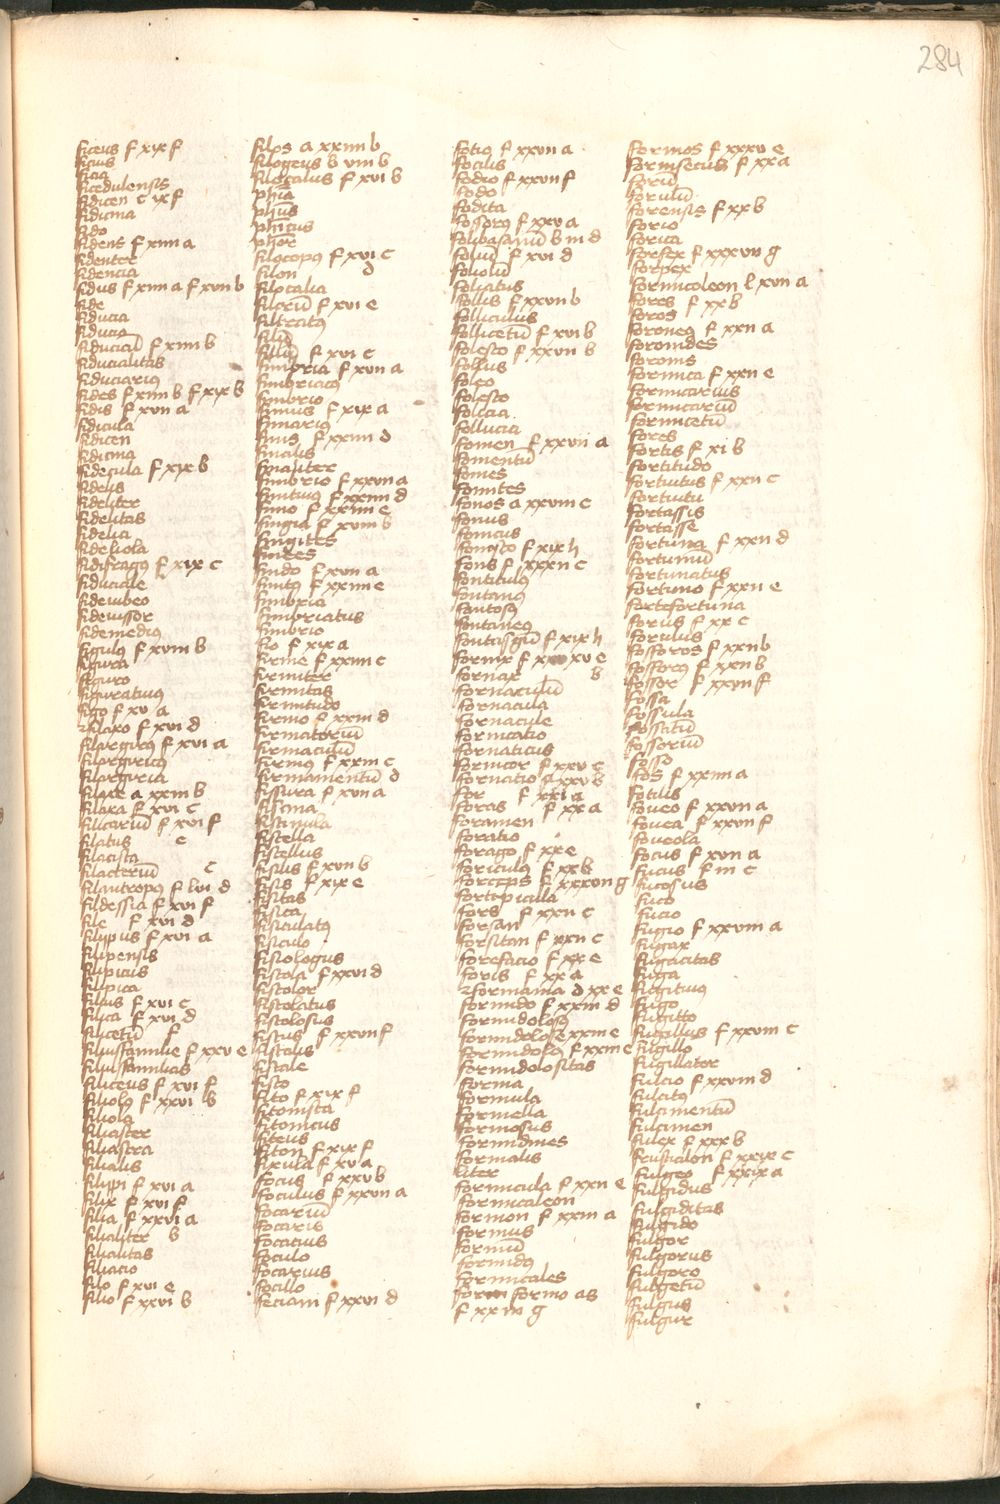 284
ficeus f xix f
ficus
ficia
ficedulensis
fidicen c ix f
fidicina
fido
fidens f xiiii a
fidenter
fidencia
fidus f xiiii a f xviii b
fide
fiducia
fiducio
fiduciał f xiiii b
fiducialitas
fiduciarius
fides f xiiii b f xix b
fidis f xvii a
fidicula
fidicen
fidicina
fidecula f xix b
fidelis
fideliter
fidelitas
fidelia
fideliola
fidifragꝰ f xix c
fiduciale
fideiubeo
fideiussor
fidemediꝰ
figulꝰ f xviii b
figura
figuro
figuratiuus
figo f xv a
filaxo f xvi d
filargirꝰ f xvi a
filargiricꝰ
filargiria
filaxe a xxiiii b
filaxa f xvi c
filicariū f xvi f
filatus e
filacista
filacteriū c
filantropꝰ f lvi d
fildessia f xvi f
file f xvi d
filipus f xvi a
filipensis
filipicus
filipica
filius f xvi c
filica f xvi d
filicetū f
filiusfamilie f xxv e
filiusfamilias
filiceus f xvi f
filiolꝰ f xxvi b
filiola
filiaster
filiastra
filialis
filipi f xvi a
filix f xvi f
filia f xxvi a
filialiter b
filialitas
filiacio
filo f xvi e
filio f xxvi b
filos a xxiiii b
filogeus b viii b
filegalus f xvi b
phīa
phūs
phicus
phōr
filocopꝰ f xvi c
filon d
filocalia
filtrū f xvi e
filtratꝰ
fillū f xvi c
fimbria f xvii a
fimbriatꝰ
fimbrio
fimus f xix a
fimariꝰ
finis f xxiiii d
finalis
finaliter
fimbrio f xxvii a
finitiuꝰ f xxiiii d
finio f xxiiii e
fingia f xviii b
fingites
findo f xvii a
finitꝰ f xxiiii e
fimbria
fimbriatus
fimbrio
fio f xix a
firme f xxiiii c
firmiter
firmitas
firmitudo
firmo f xxiii d
firmatoriū
firmaculū
firmus f xxiii c
firmamentū d
fissura f xvii a
fiscina
fiscinula
fistella
fistellus
fisilis f xvii b
fisis f xix e
fisitas
fisica
fisiculatꝰ
fisiculo
fisiologus
fistola f xxvi d
fistolor
fistolatus
fistolosus
fictus f xxvii f
fiscalis
fiscale
fisco
fito f xix f
fitonista
fitonicus
fiteus
fiton f xix f
fixula f xv a
focus f xxv b
foculus f xxvii a
focariū
focaris
focatius
foculo
focarius
focillo
feciam f xxvi d
fotio f xxvii a
focilis
fodio f xxvii f
fodo
fodita
fossorꝰ f xxv a
folibasaniū b iii d
foliū f xvi d
foliolū
foliatus
follis f xxvii b
folliculus
follicetū f xvi b
folesco f xxvii b
follus
foleo
folesco
folicia
follucia
fomen f xxvii a
fomentū
fomes
fomites
fonos a xxviii c
fonus
fonicus
fonisco f xix h
fons f xxxii c
fonticulꝰ
fontanꝰ
fontosꝰ
fontaneꝰ
fornix f xxv e
fornax b
fornaculū
fornacula
fornacule
fornicatio
fornaticus
fornicor f xxv c
fornatio f xxv b
for f xxi a
foras f xx a
foramen
foratio
forago f xx e
foriculꝰ f xx b
forceps f xxxvii g
forcipicula
fors f xxii c
forsan
forsitan f xxii c
forefacio f xx e
foris f xx a
formania d xx e
formido f xxiii d
formidolosꝰ
formidolose xxiii e
formidolꝰ f xxiii e
formidolositas
forma
formula
formella
formosus
formidines
formalis
liter
formicula f xxii e
formicaleon
formon f xxiii a
formus
formiū
formidꝰ
formicales
formo as
f xx iii g
formos f xxxv e
forinsecus f xx a
foriū
forulū
forensis f xx b
forio
forica
forfex f xxxvii g
forpex
formicoleon l xvii a
fores f xx b
foros
foroneꝰ f xxii a
foronides
foronis
formica f xxii e
formicarius
formicariū
formicetū
fores
fortis f xi b
fortitudo
fortuitus f xxii c
fortuitu
fortassis
fortasse
fortuna f xxii d
fortuniū
fortunatus
fortuno f xxii e
fortefortuna
forus f xx c
forulus
fossoros f xxii b
fossorꝰ f xxii b
fossor f xxvii f
fossa
fossula
fossatū
fossoriū
fosso
fos f xxiiii a
fotilis
foueo f xxvii a
fouea f xxvii f
foueola
focus f xvii a
fucus f iii c
fucosus
fuco
fucio
fugio f xxviii a
fugax
fugacitas
fuga
fugitiuꝰ
fugo
fugitto
fugillus f xxviii c
fugillo
fugillator
fulcio f xxviii d
fulcitꝰ
fulcimentū
fulcimen
fulex f xxx b
frusticalon f xxix c
fulgeo f xxix a
fulgidus
fulgiditas
fulgido
fulgor
fulgorus
fulgoro
fulgetū
fulgus
fulgur